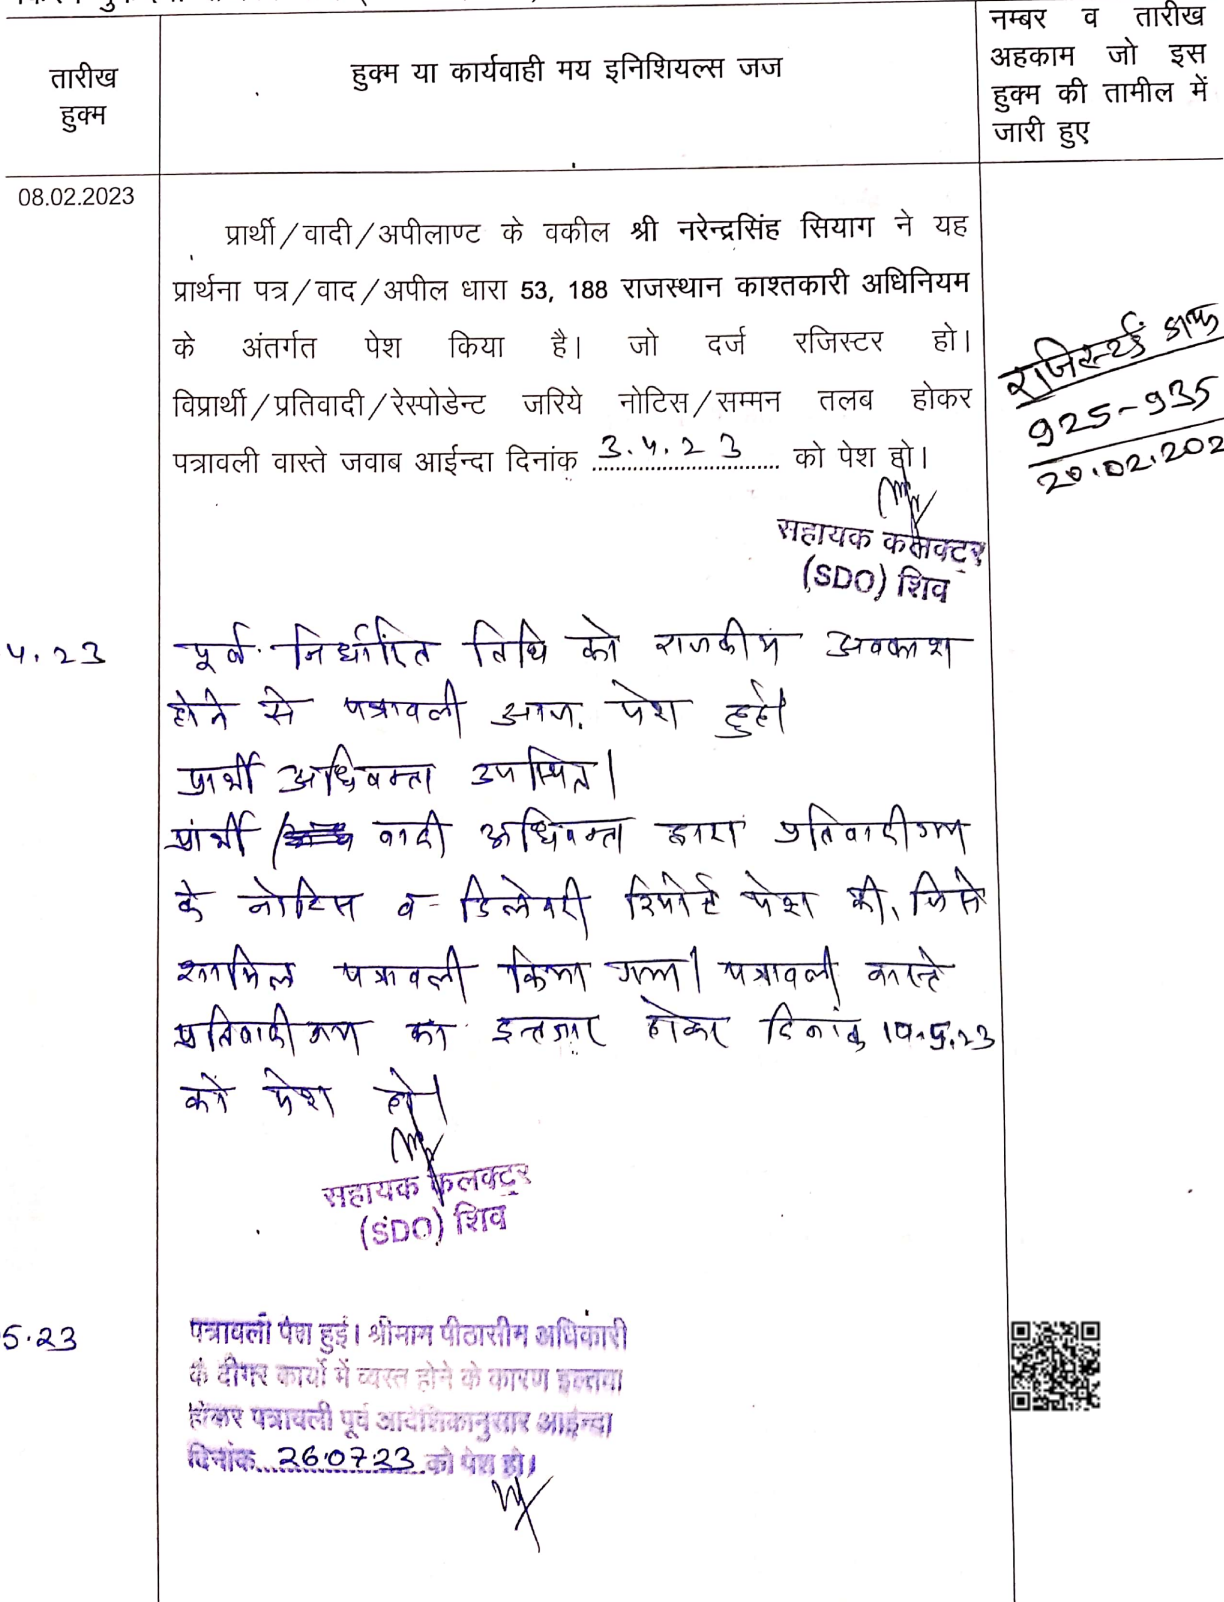 तारीख
हुक्म
हुक्म या कार्यवाही मय इनिशियल्स जज
नम्बर व तारीख
अहकाम जो इस
हुक्म की तामील में
जारी हुए
08.02.2023
प्रार्थी/वादी/अपीलाण्ट के वकील श्री नरेन्द्रसिंह सियाग ने यह
प्रार्थना पत्र/वाद/अपील धारा 53, 188 राजस्थान काश्तकारी अधिनियम
के अंतर्गत पेश किया है। जो दर्ज रजिस्टर हो।
विप्रार्थी/प्रतिवादी/रेस्पोडेन्ट जरिये नोटिस/सम्मन तलब होकर
पत्रावली वास्ते जवाब आईन्दा दिनांक 3.4.23 को पेश हो।
सहायक कलक्टर
(SDO) शिव
रजिस्टर्ड डाक
925-935
20.02.202
4.23
पूर्व निर्धारित तिथि को राजकीय अवकाश
होने से पत्रावली आज पेश हुई।
प्रार्थी अधिवक्ता उपस्थित।
प्रार्थी / वादी अधिवक्ता द्वारा प्रतिवादीगण
के नोटिस व डिलेवरी रिपोर्ट पेश की, जिसे
शामिल पत्रावली किया गया। पत्रावली वास्ते
प्रतिवादीगण का इन्तजार होकर दिनांक 5.23
को पेश हो।
सहायक कलक्टर
(SDO) शिव
5.23
पत्रावली पेश हुई। श्रीमान पीठासीन अधिकारी
के दीगर कार्यो में व्यस्त होने के कारण इल्तवा
होकर पत्रावली पूर्व आदेशिकानुसार आईन्दा
दिनांक 26.07.23 को पेश हो।